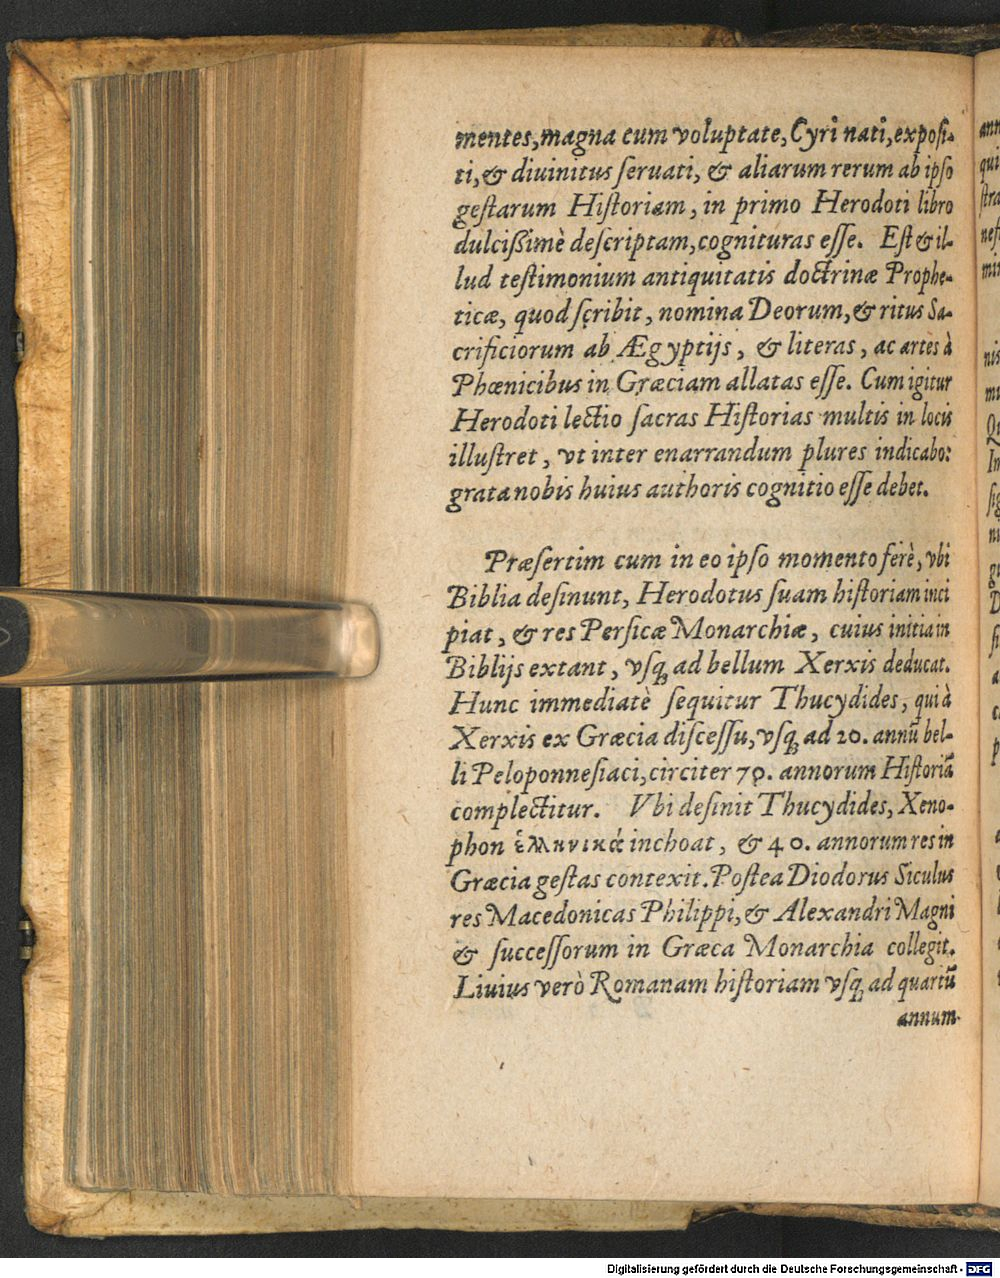 mentes, magna cum voluptate, Cyri nati, exposi-
ti, & diuinitus ſeruati, & aliarum rerum ab ipſo
geſtarum Hiſtoriam, in primo Herodoti libro
dulcißimè deſcriptam, cognituras eſſe. Eſt & il-
lud teſtimonium antiquitatis doctrinæ Prophe-
ticæ, quod ſcribit, nomina Deorum, & ritus Sa-
crificiorum ab Ægyptijs, & literas, ac artes à
Phœnicibus in Græciam allatas eſſe. Cum igitur
Herodoti lectio ſacras Hiſtorias multis in locis
illuſtret, vt inter enarrandum plures indicabo:
grata nobis huius authoris cognitio eſſe debet.
Præſertim cum in eo ipſo momento ferè, vbi
Biblia deſinunt, Herodotus ſuam hiſtoriam inci
piat, & res Perſicæ Monarchiæ, cuius initia in
Biblijs extant, vſq; ad bellum Xerxis deducat.
Hunc immediatè ſequitur Thucydides, qui à
Xerxis ex Græcia diſceſſu, vſq; ad 20. annũ bel-
li Peloponneſiaci, circiter 70. annorum Hiſtoriã
complectitur. Vbi deſinit Thucydides, Xeno-
phon ἑλληνικά inchoat, & 40. annorum res in
Græcia geſtas contexit. Poſtea Diodorus Siculus
res Macedonicas Philippi, & Alexandri Magni
& ſucceſſorum in Græca Monarchia collegit.
Liuius verò Romanam hiſtoriam vſq; ad quartũ
annum
ann
qui
ſtra
neſ
min
nis
mu
Qu
In
ſig
Digitalisierung gefördert durch die Deutsche Forschungsgemeinschaft - DFG